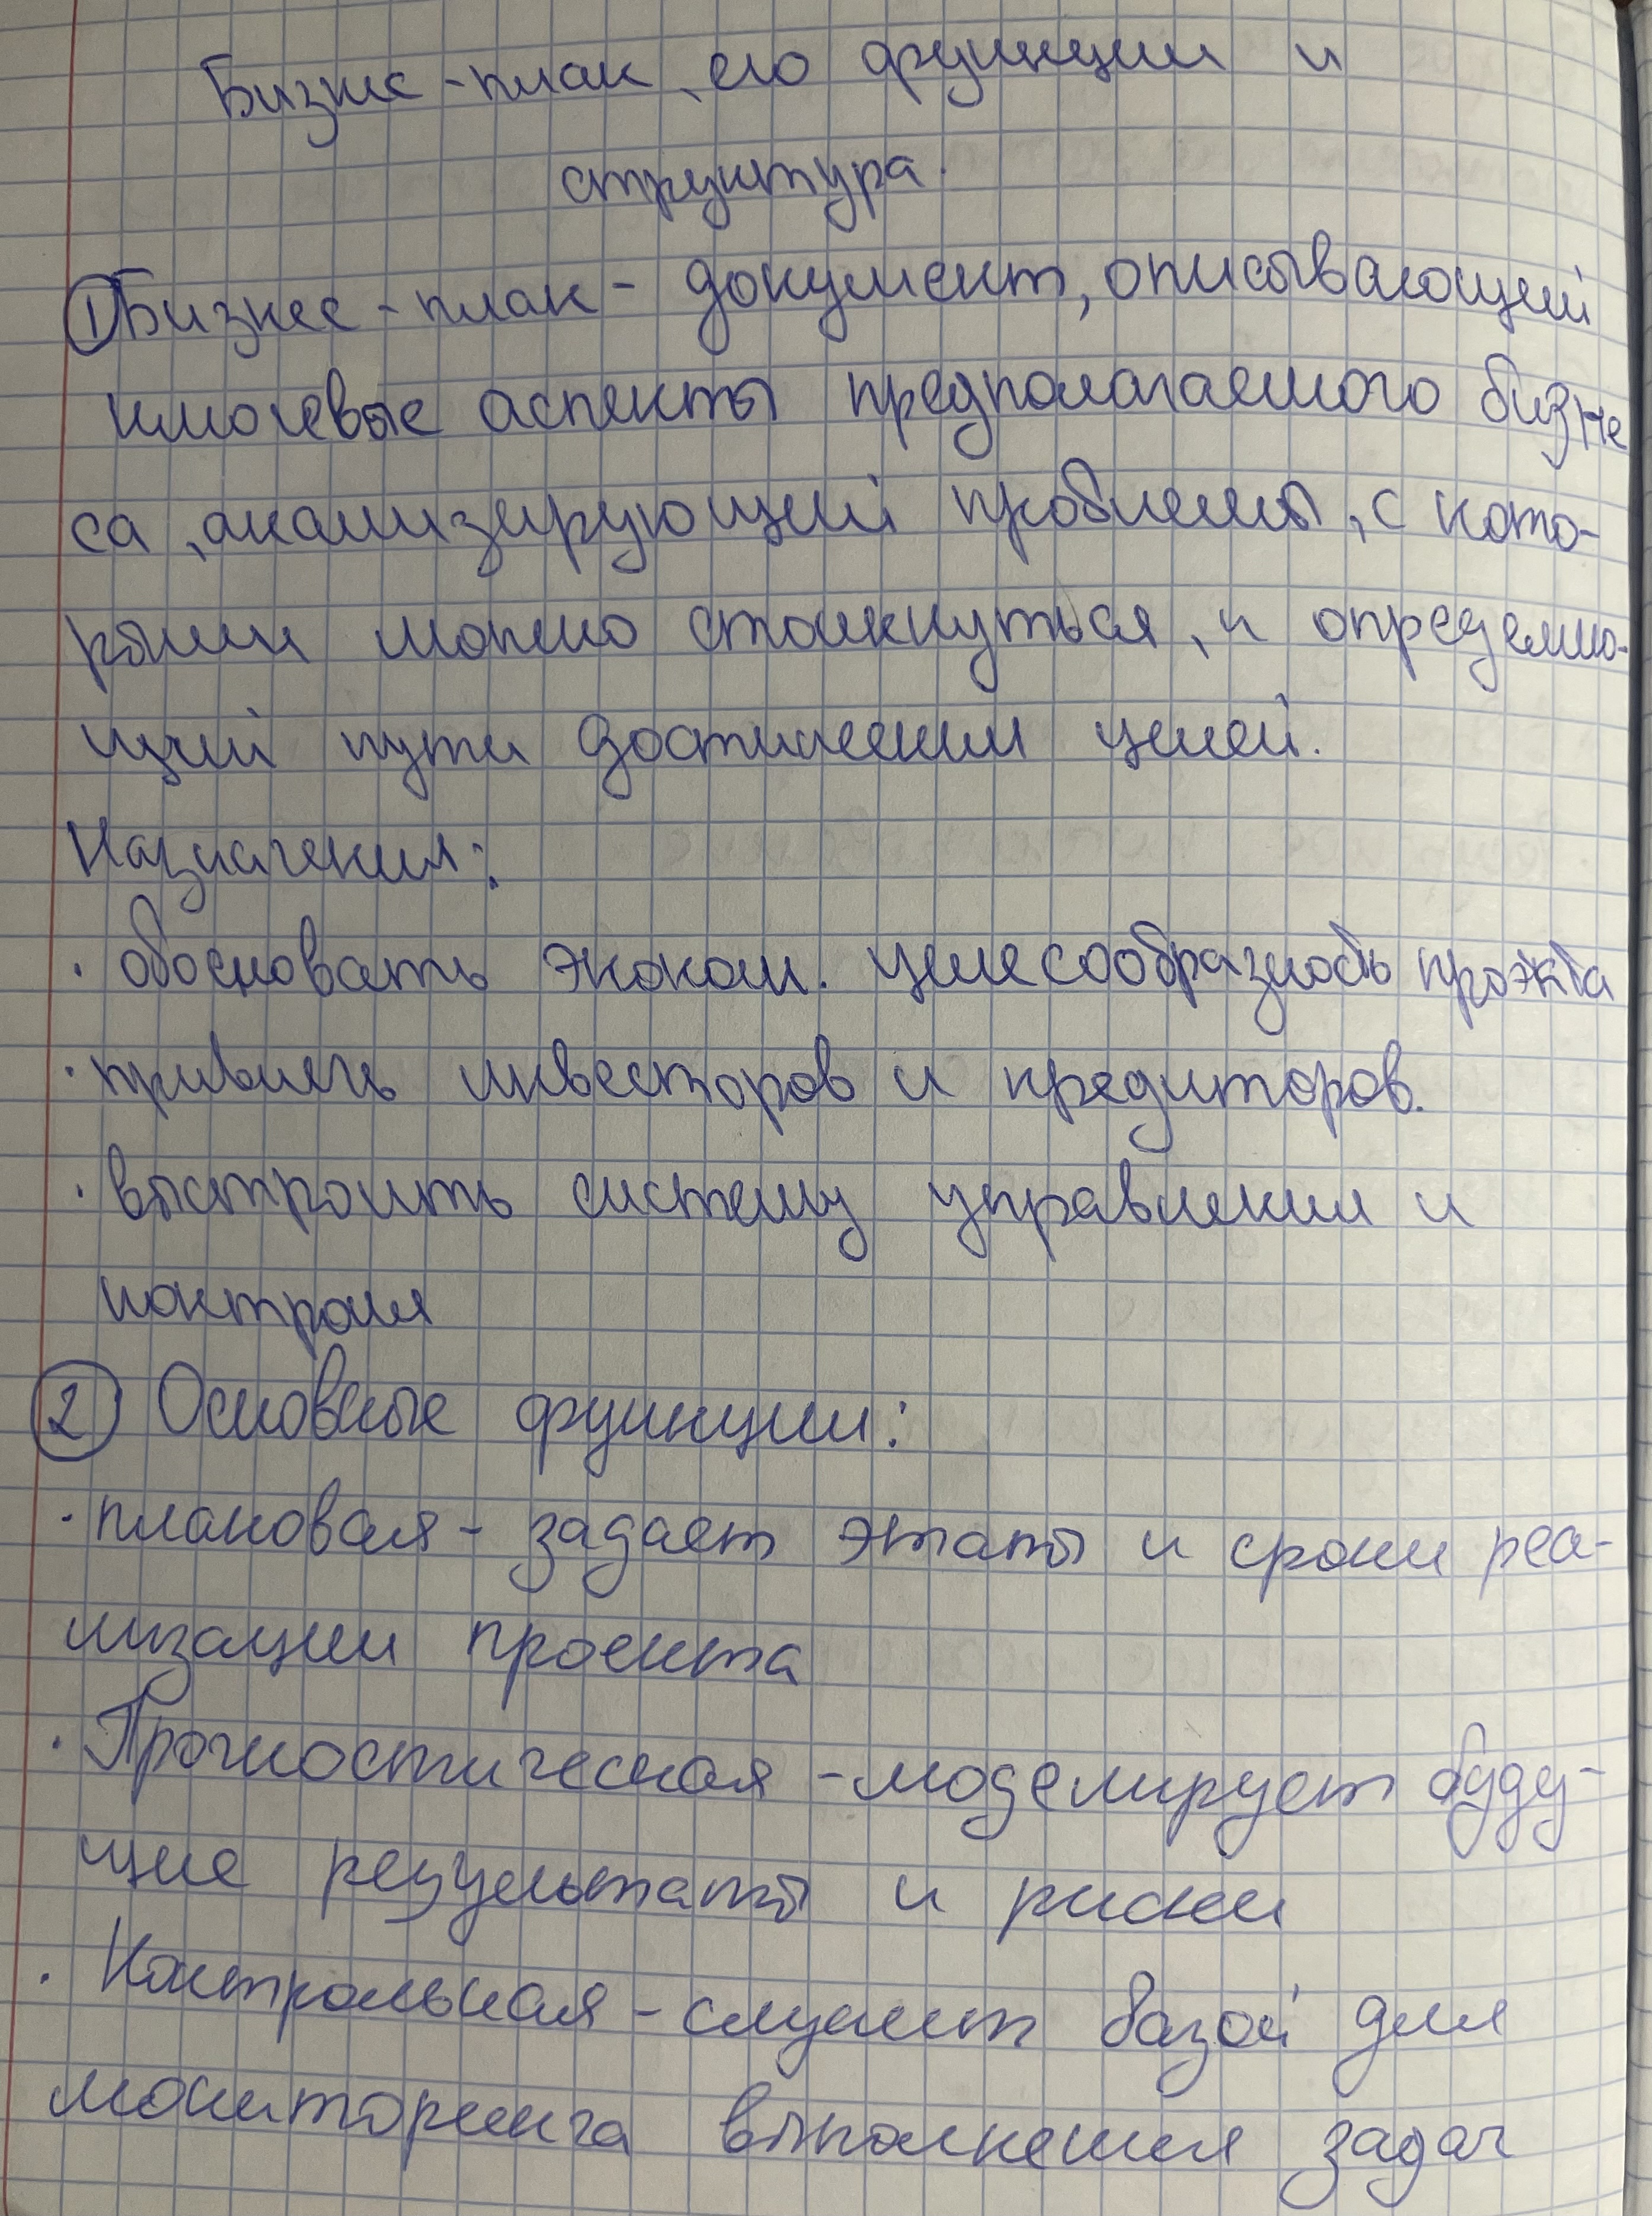 Бизнес-план, его функции и
структура.
① Бизнес-план - документ, описывающий
ключевые аспекты предполагаемого бизне
са, анализирующий проблемы, с кото-
рыми можно столкнуться, и определяю-
щий пути достижения целей.
Назначения:
· обосновать эконом. целесообразность проэкта
· привлечь инвесторов и кредиторов.
· выстроить систему управления и
контроля
② Основные функции:
· плановая - задает этапы и сроки реа-
лизации проекта
· Прогностическая - моделирует буду-
щие результаты и риски
· Контрольная - служит базой для
мониторинга выполнения задач